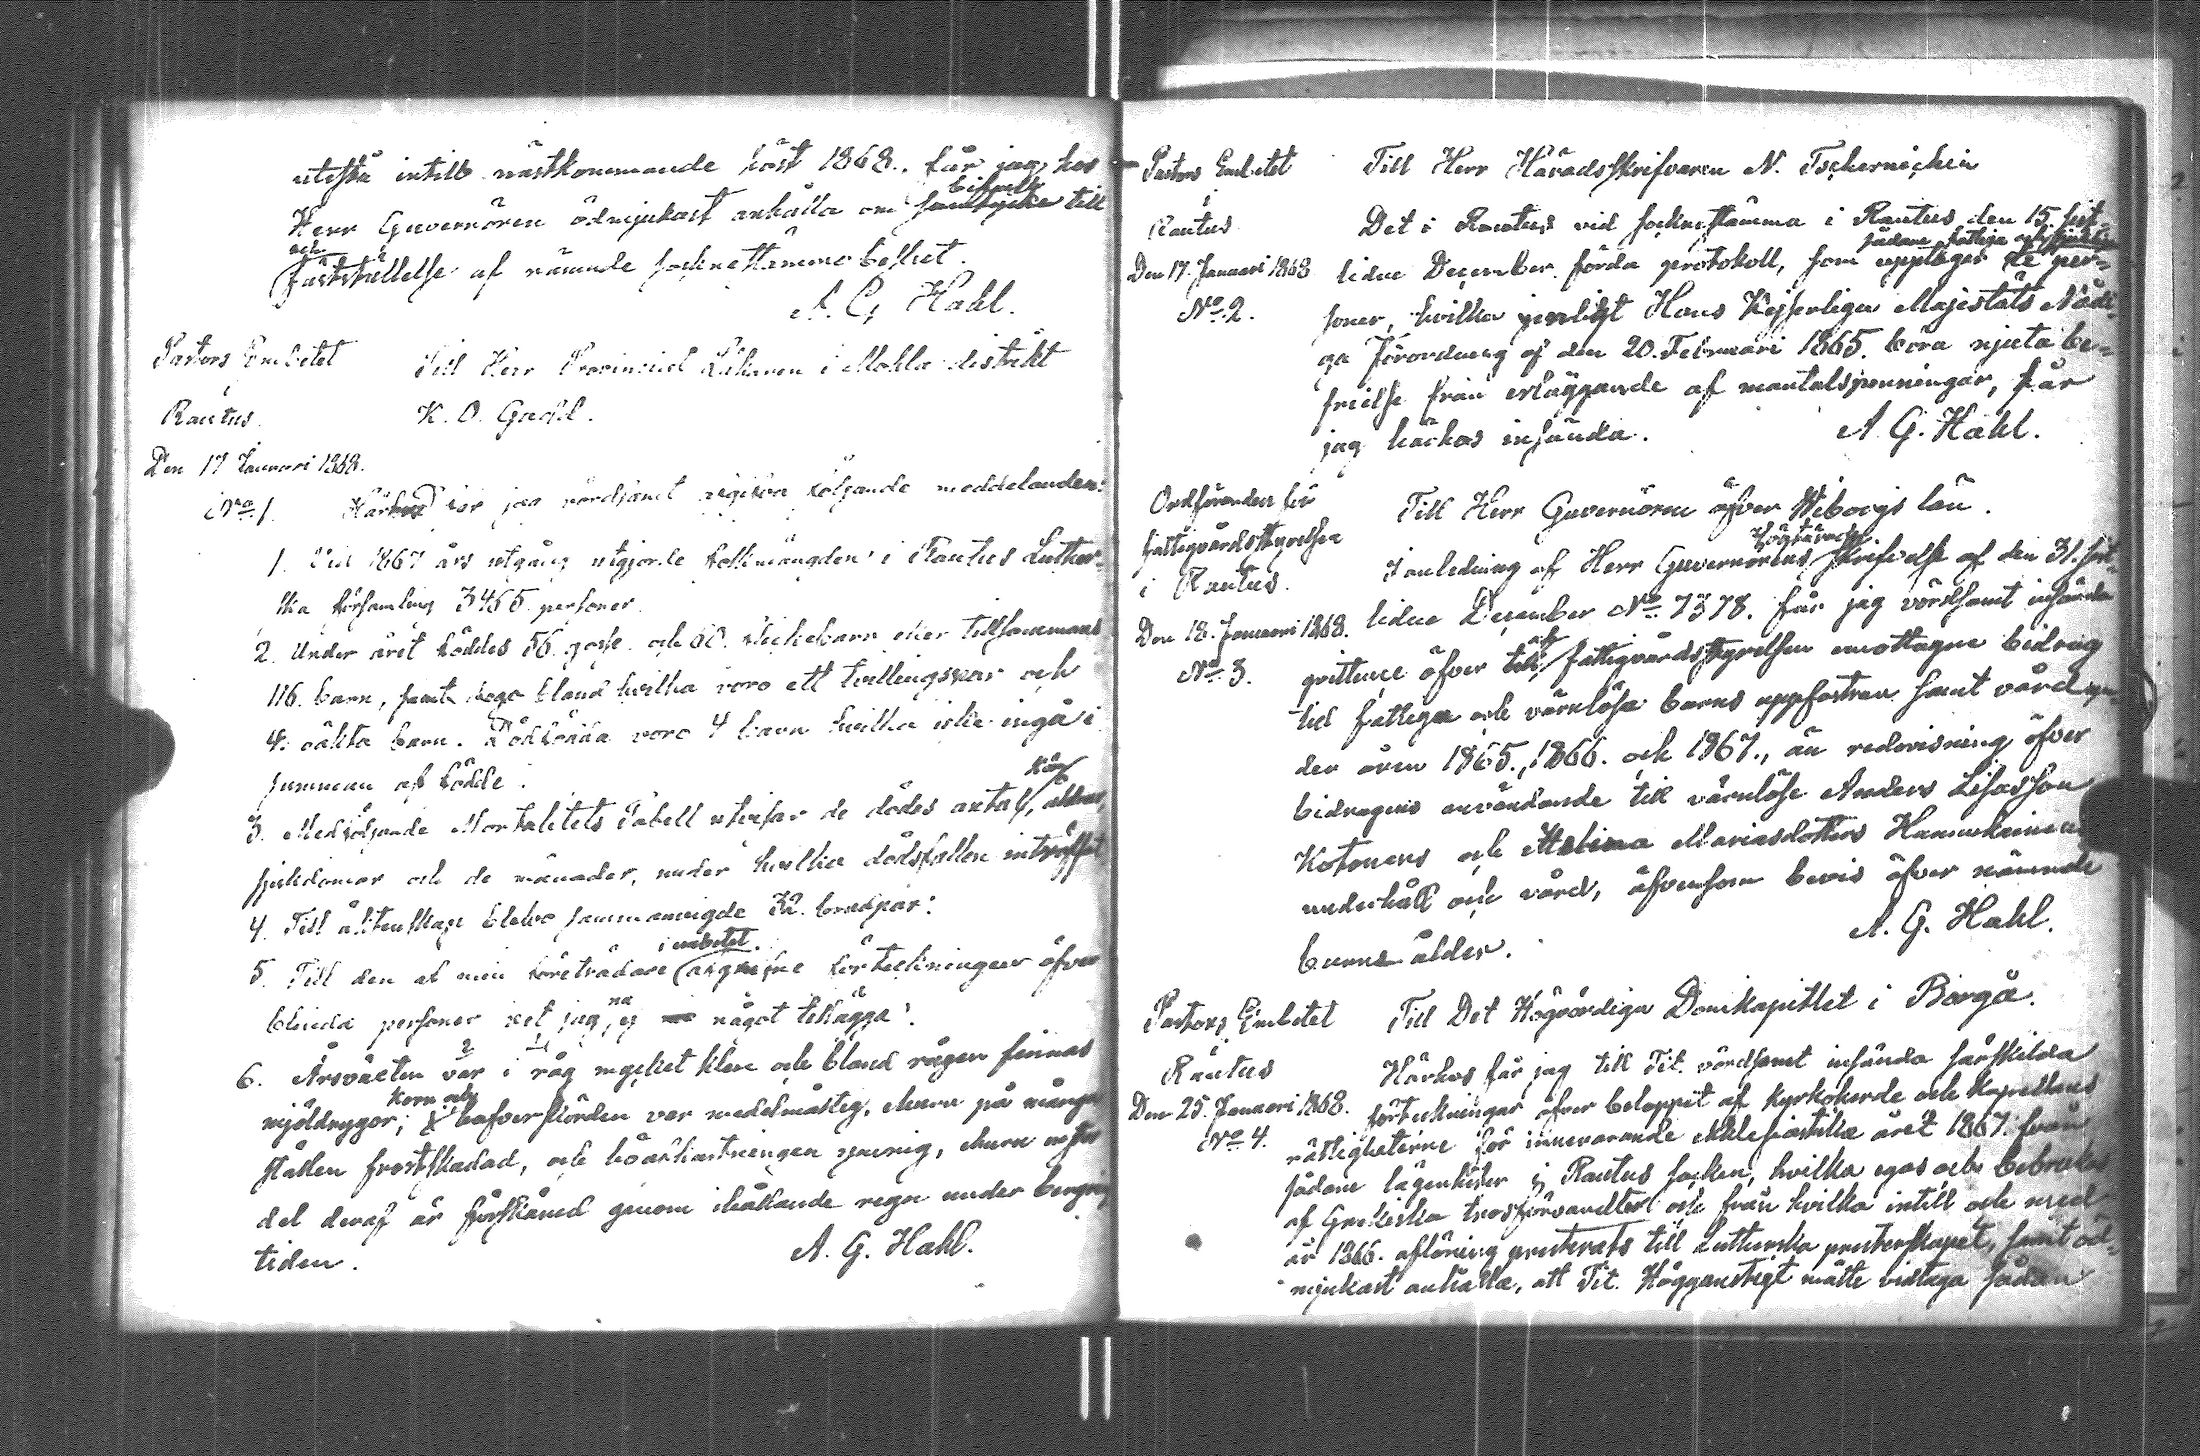 utestå intill nästkommande höst 1868., får jag hos
Herr Guvernören ödmjukast anhålla om bifall till
och
fastställelse af nämnde sockenstämmobeslut.
A. G. Hahl.
Pastors Embetet
i
Rautus.
Den 17 Januari 1868.
No. 1.
Till Herr Provincial Läkaren i Mohla distrikt
K. O. Gadd.
Härhos får jag vördsamt afgifva följande meddelanden:
1. Vid 1867 års utgång utgjorde folkmängden i Rautus Luther-
ska församling 3465 personer.
2. Under året föddes 56. gosse och 60. flickebarn eller tillsammans
116. barn, bland hvilka voro ett tvillingspar och
4. oäkta barn. Dödfödda voro 4 barn hvilka icke ingå i
summan af födde.
3. Medföljande Mortalitets Tabell utvisar de dödes antal, kön, ålder,
sjukdomar och de månader, under hvilka dödsfallen inträffat
4. Till äktenskap blefvo sammanvigde 32. brudpar.
5. Till den af min företrädare i embetet afgifne förteckningen öfver
blinda personer vet jag ej något tillägga.
6. Årsväxten var i råg mycket klen och bland rågen finnas
mjöldrygor; korn och hafverskörden var medelmåttig, ehuru på många
ställen frostskadad, och höafkastningen ymnig, ehuru en stor
del deraf är förskämd genom ihållande regn under bergnings
tiden.
A. G. Hahl.
Pastors Embetet
i
Rautus
Den 17. Januari 1868
No. 2.
Till Herr Häradsskrifvaren N. Tschernichin
Det i Rautus vid sockenstämma i Rautus den 15. sist-
lidne December förda protokoll, som upptager sådane fattige och sjuklige per-
soner, hvilka jemlikt Hans Kejserliga Majestäts Nådi-
ga Förordning af den 20. Februari 1865. böra njuta be-
frielse från erläggande af mantalspenningar, får
jag härhos insända.
A. G. Hahl.
Ordföranden för
fattigvårdsstyrelsen
i Rautus.
Den 18. Januari 1868.
No. 3.
Till Herr Guvernören öfver Wiborgs län.
I anledning af Herr Guvernörens högtärade skrifvelse af den 31. sist-
lidne December No. 7378. får jag vördsamt insända
qvittence öfver af fattigvårdsstyrelsen emottagne bidrag
till fattiga och värnlösa barns uppfostran samt vård un-
der åren 1865., 1866. och 1867., än redovisning öfver
bidragens användande till värnlöse Anders Lisasson
Kotonens och Helena Mariasdotters Hannukainens
underhåll och vård, äfvensom bevis öfver nämnde
barns ålder.
A. G. Hahl.
Pastors Embetet
Rautus
Den 25. Januari 1868.
No. 4.
Till Det Högvördiga Domkapitlet i Borgå.
Härhos får jag till Tit. vördsamt insända särskilda
förteckningar öfver beloppet af kyrkoherde och kapellans
rättigheterne för innevarande ekklesiastika året 1867. från
sådane lägenheter i Rautus socken, hvilka egas och bebrukas
af Grekiska trosförvandter och från hvilka intill och med
år 1866. aflöning presterats till Lutherska presterskapet, samt öd-
mjukast anhålla, att Tit. Höggunstigt måtte vidtaga sådan